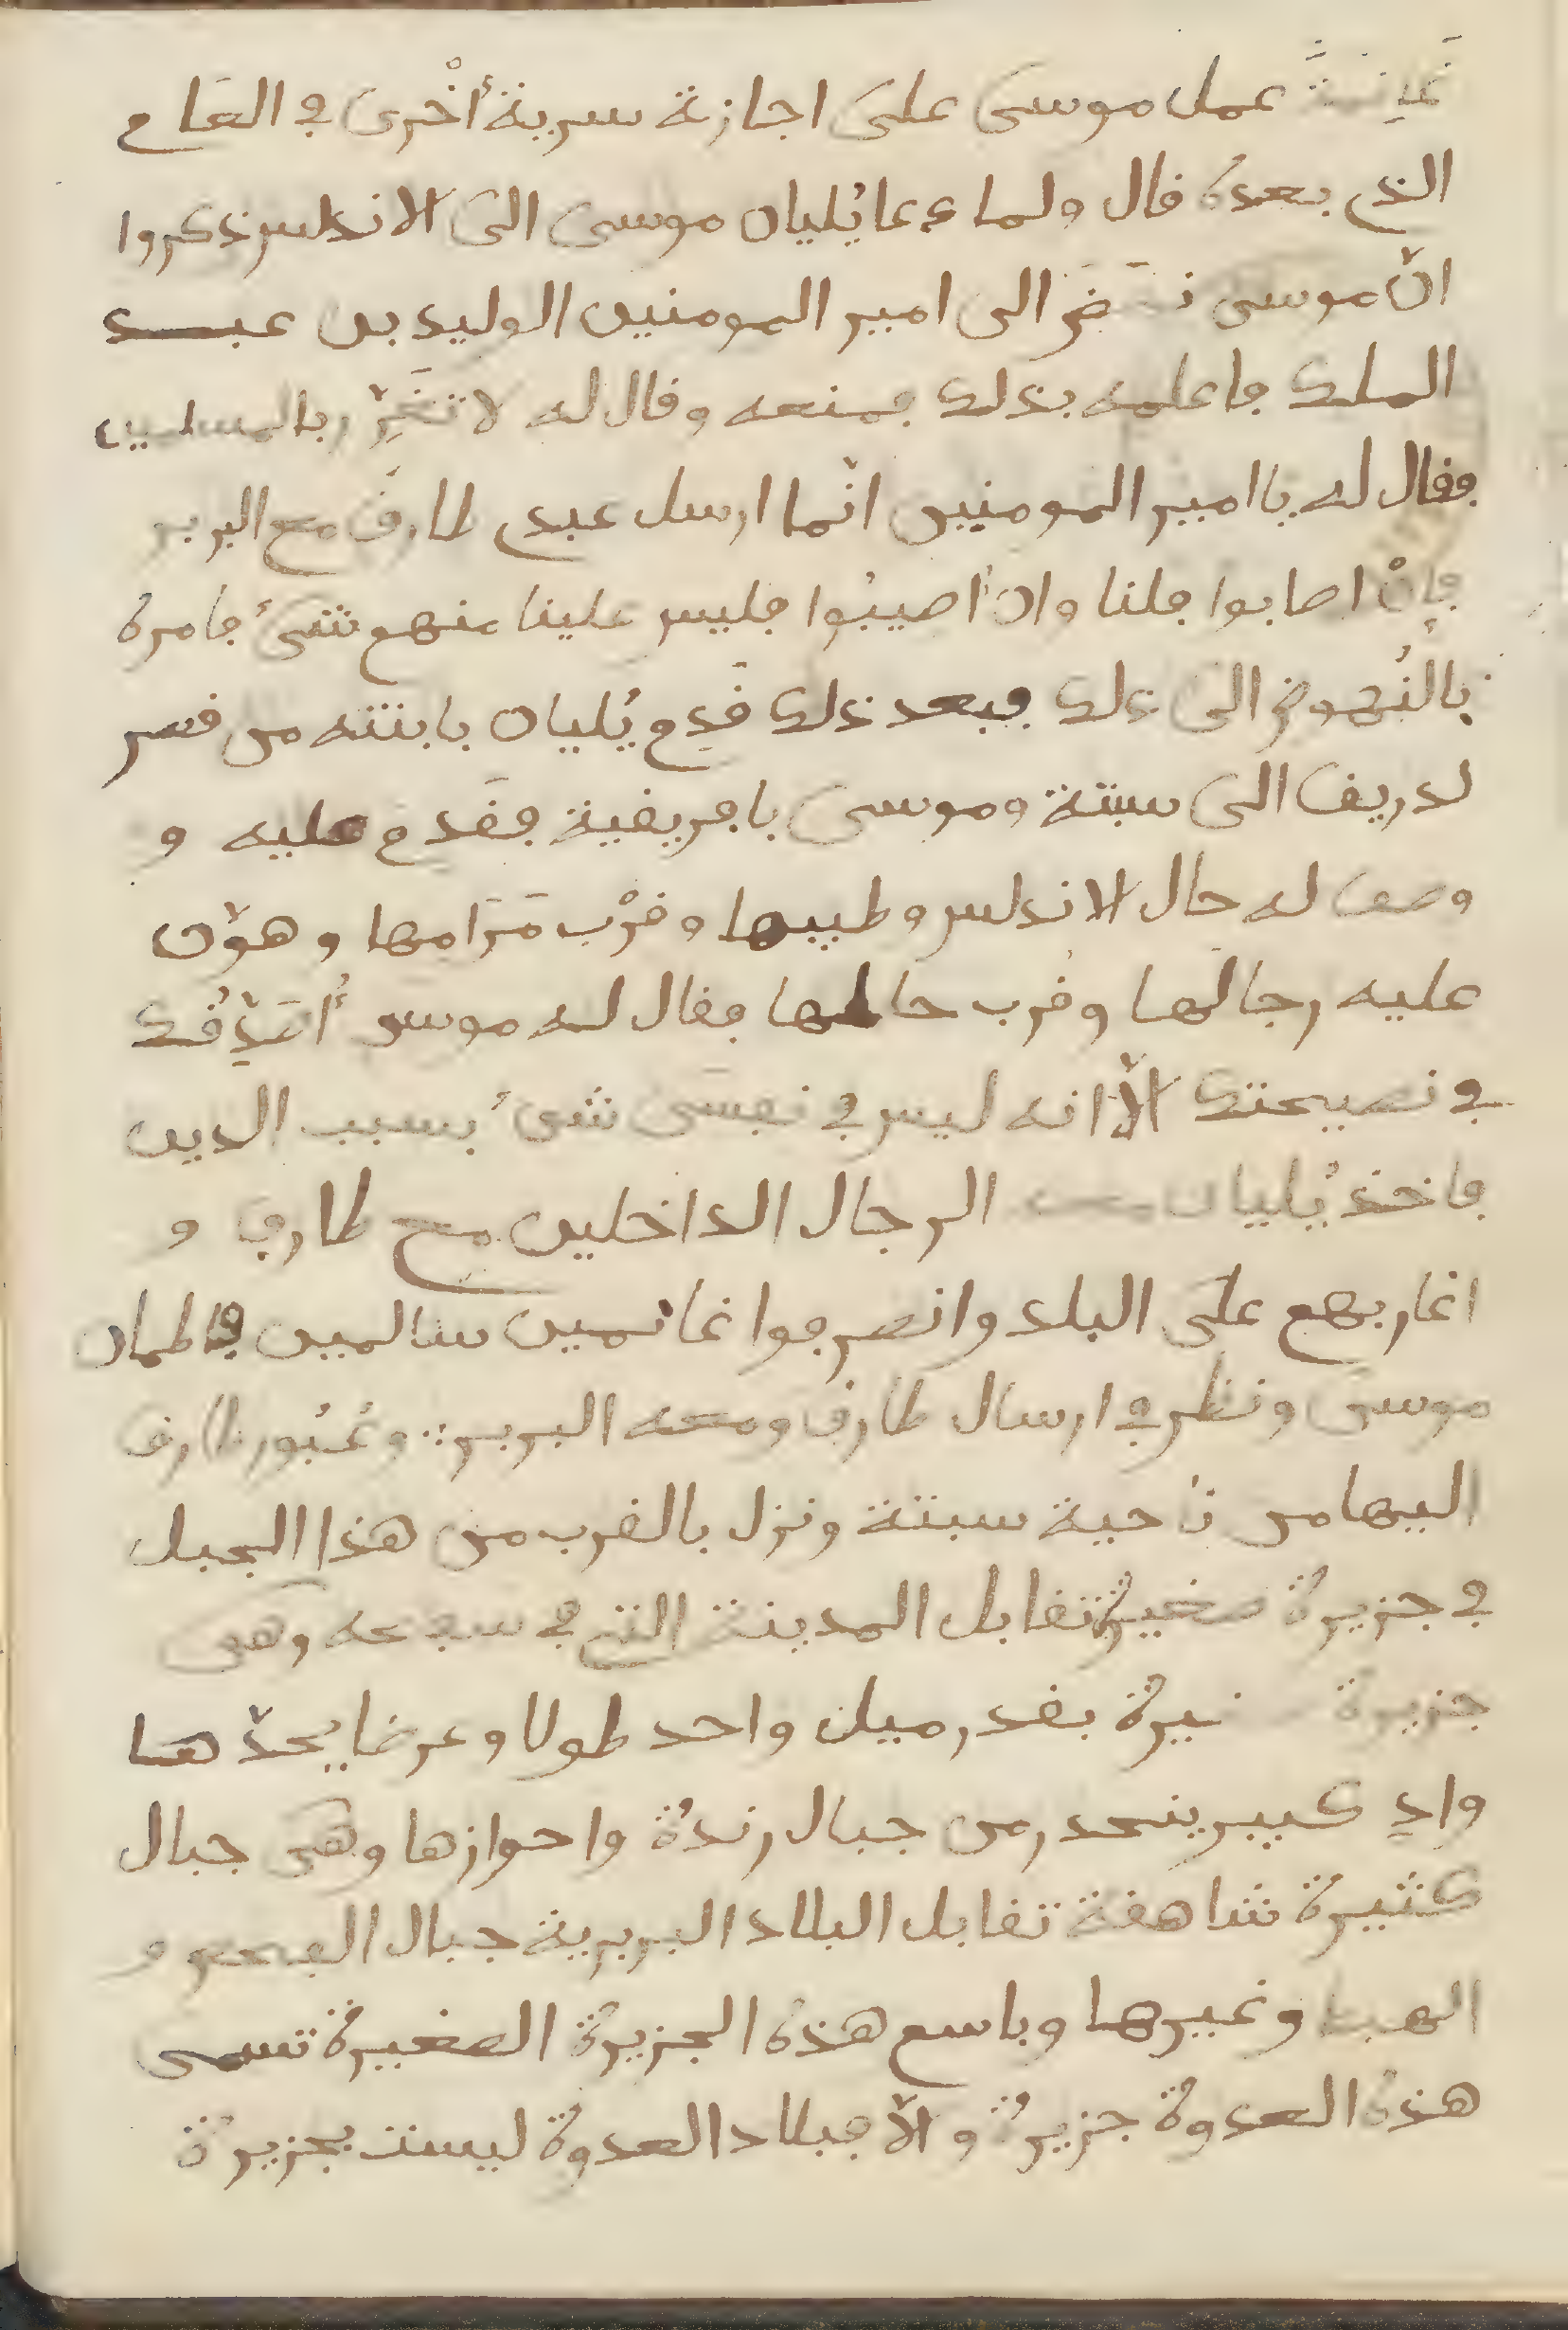 عمل موسى على اجازة سرية أخْرى في العام
الذي بعده قال ولما دعا يُليان موسى الى الاندلس ذكروا
انّ موسى نهض الى امير المومنين الوليد بن عبد
الملك فاعلمه بذلك فمنعه وقال له لا تغرّر بالمسلمين
فقال له يا امير المومنين انّما ارسل عبدي طارق مع البربر
فإنْ اصابوا فلنا وان أُصيبُوا فليس علينا منهم شىءٌ فامره
بالنُهوض الى ذلك فبعد ذلك قَدِم يُليان بابنته من قصر
لدريف الى سبتة وموسى بافريقية فقَدم عليه و
وصف له حال الاندلس وطيبها وقرْب مَرَامها وهوّن
عليه رجالها وقُرب حالها فقال له موسى أُصَدّقُك
في نصيحتك الاّ انه ليس في نفسى شىءٌ بسبب الدين
فاخذ يُليان الرجال الداخلين مع طارق و
اغار بهم على البلد وانصرفوا غانمين سالمين فاطمان
موسى ونظر في ارسال طارق ومعه البربر ∴ وعُبُور طارق
اليها من ناحية سبتة ونزل بالقرب من هذا الجبل
في جزيرة صغيرة تقابل المدينة التي في سفحه وهى
جزيرة بقدر ميل واحد طولا وعرضا يحدّها
وادٍ كبير ينحدر من جبال رندة واحوازها وهى جبال
كثيرة شاهقة تقابل البلاد البربرية جبال الفحص و
الهبط وغيرها وباسم هذه الجزيرة الصغيرة تسمى
هذه العدوة جزيرة والاّ فبلاد العدوة ليست بجزيرة